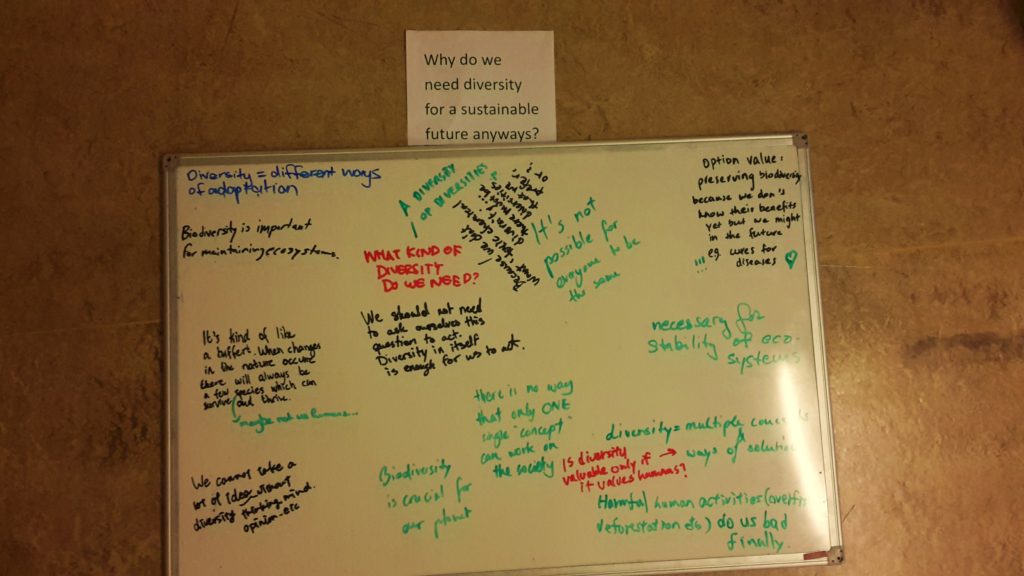 Why do we
need diversity
for a sustainable
future anyways?
Diversity = different ways
of adaptation
Biodiversity is important
for maintaining ecosystems.
A DIVERSITY
OF DIVERSITIES
WHAT KIND OF
DIVERSITY
DO WE NEED?
It's not
possible for
everyone to be
the same
Option value:
preserving biodiversity
because we don't
know their benefits
yet but we might
in the future
eg. cures for
diseases
!!!
We should not need
to ask ourselves this
question to act.
Diversity in itself
is enough for us to act.
It's kind of like
a buffert. When changes
in the nature occure
there will always be
a few species which can
survive and thrive.
maybe not we humans...
necessary for
stability of eco-
systems
there is no way
that only ONE
single "concept"
can work on
the society
diversity = multiple
ways of
Is diversity
valuable only if
it values humans?
We cannot take a
lot of ideas without
diversity thinking, mind.
opinion. etc
Biodiversity
is crucial for
our planet
Harmful human activities
deforestation etc) do us bad
finally.